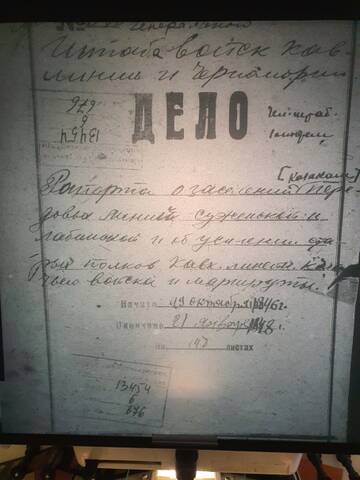 Генеральной
Штаба войск Кав.
линии и Черномории
676
6
13454
ДЕЛО
[казаками]
Рапорта о заселении Пере-
довых линий Сунженской и
Лабинской и об усилении ста-
рых полков Кавк. линейн. Каза-
чьего войска и маршруты.
Начато 19 октября 1846 г.
Окончено 21 января 1848 г.
на 147 листах
13454
6
676